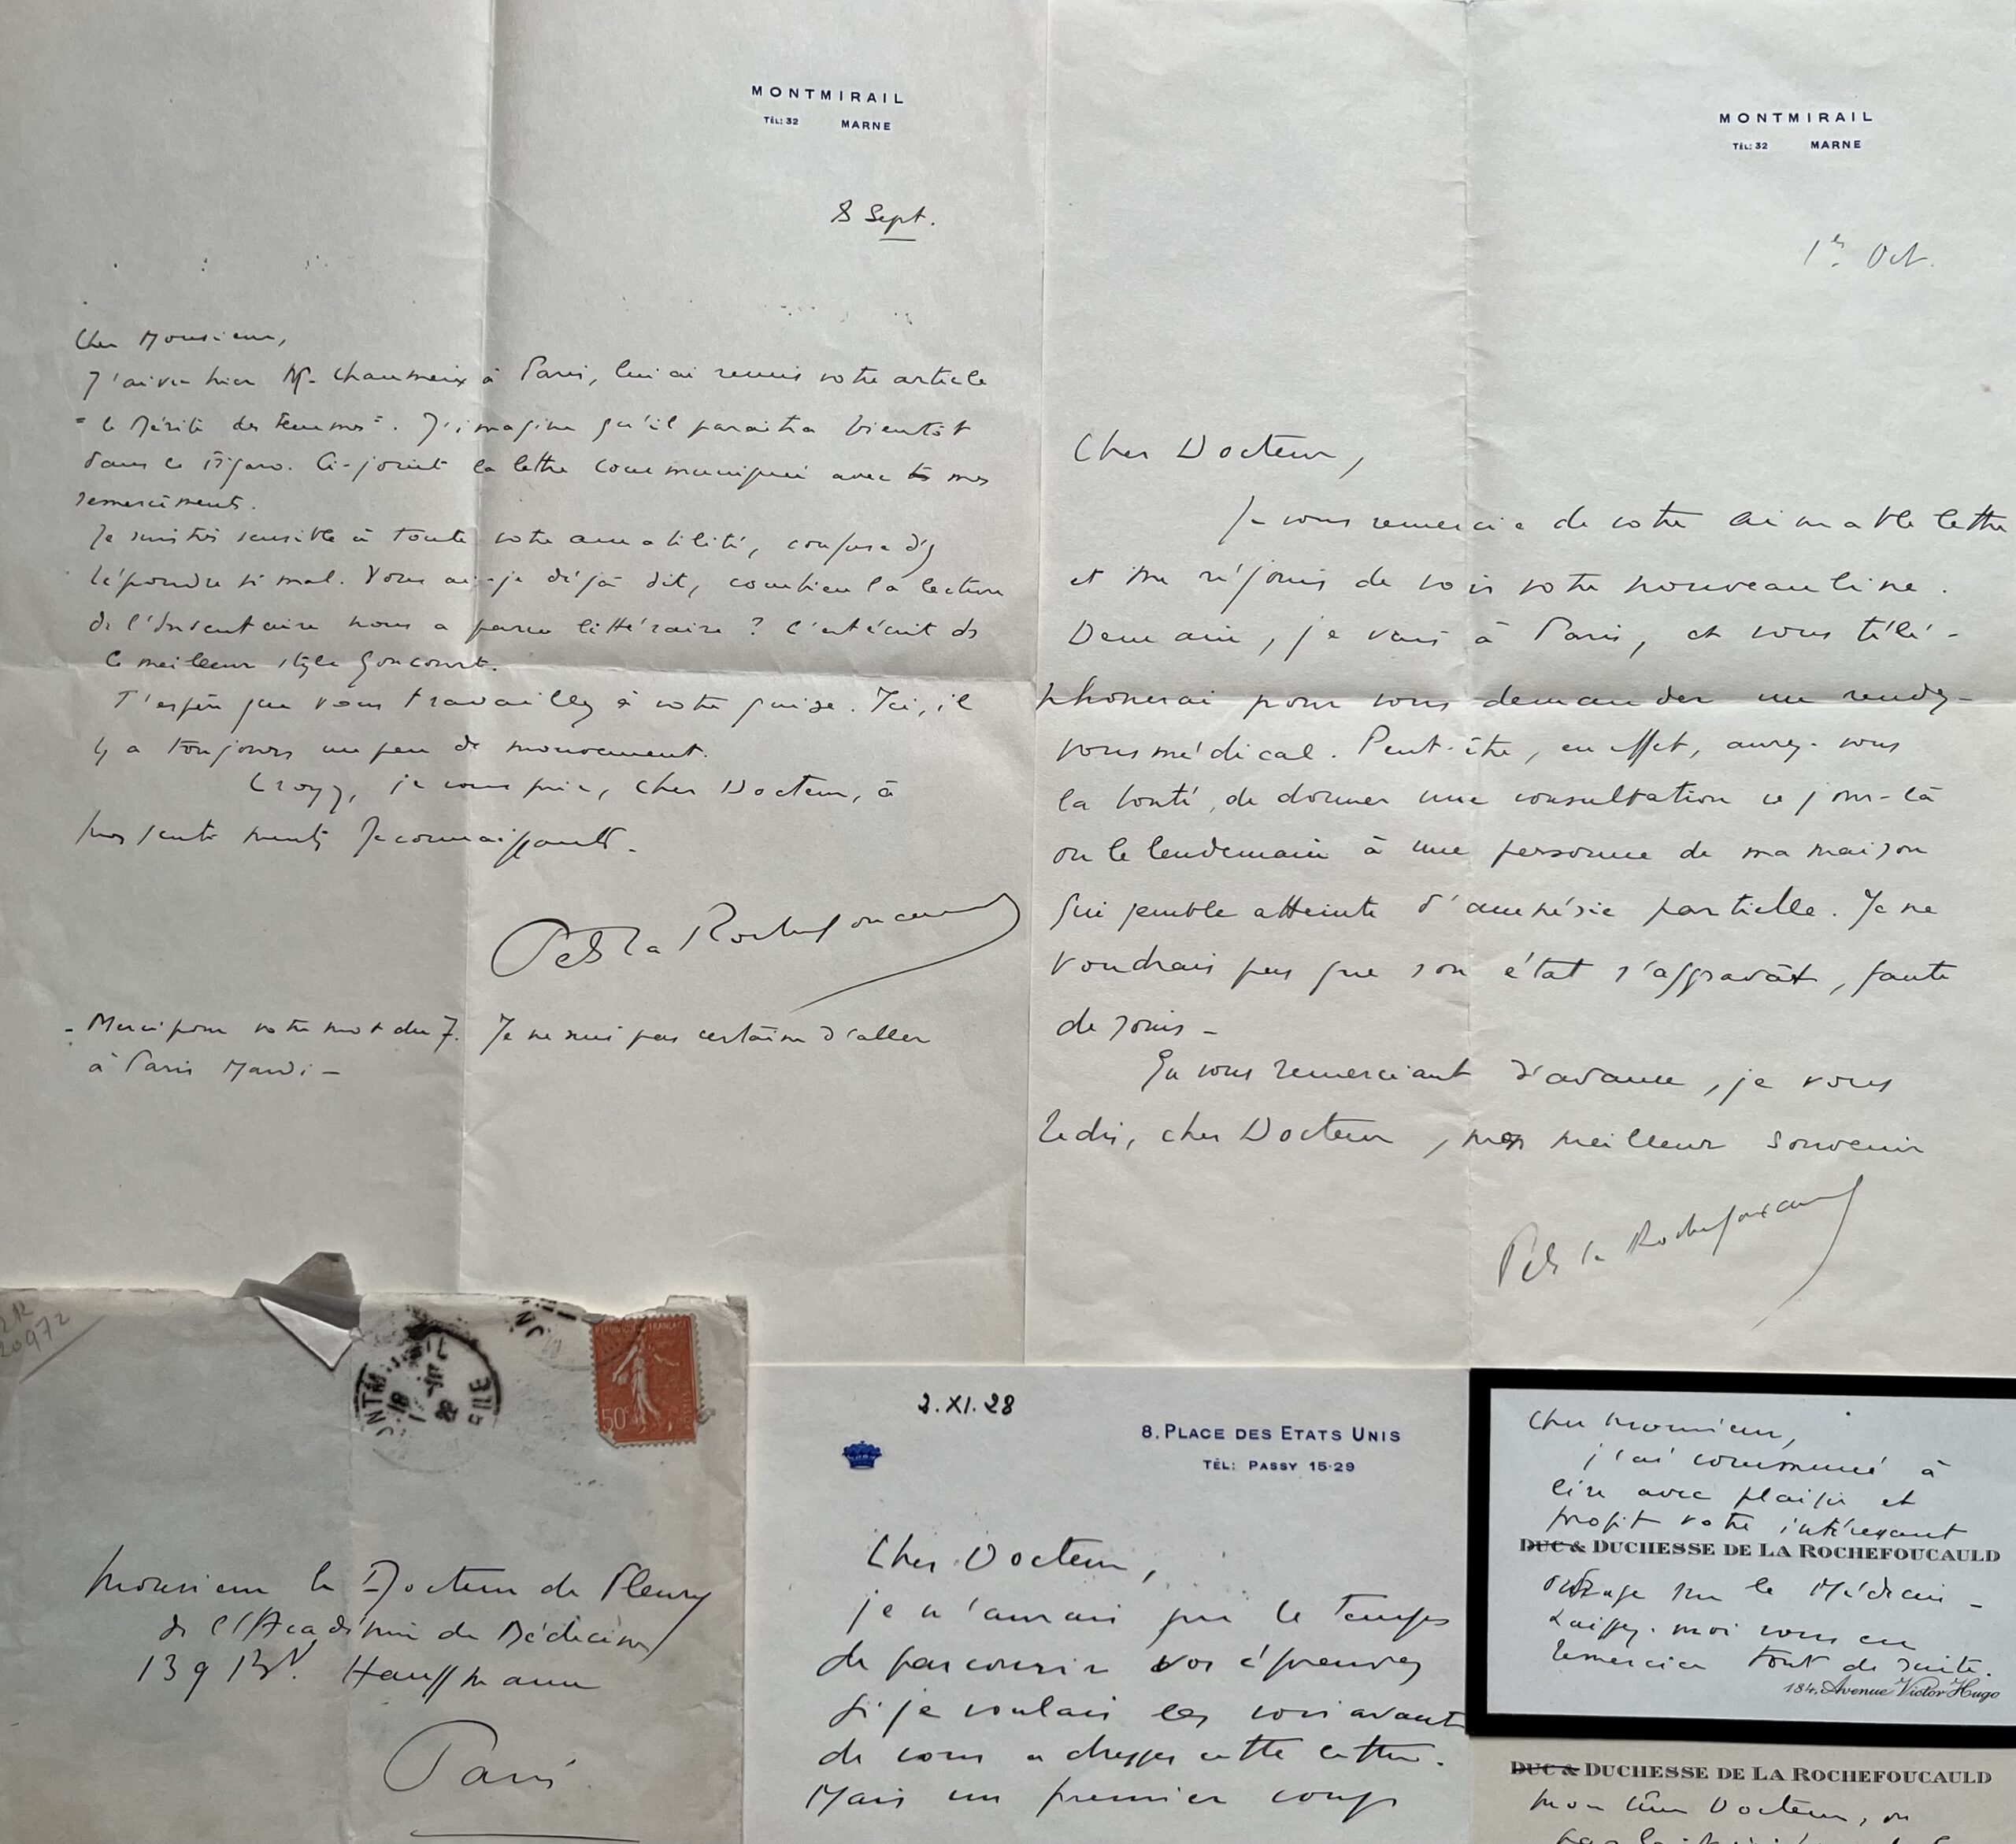 MONTMIRAIL
TÉL: 32 MARNE
8 Sept.
Cher Monsieur,
J'ai vu hier Mr. Chaumeix à Paris, lui ai remis votre article
"le Mérite des femmes". J'imagine qu'il paraîtra bientôt
dans le Figaro. Ci-joint la lettre communiquée avec mes
remerciements.
Je suis très sensible à toute votre amabilité, confuse d'y
répondre si mal. Vous ai-je déjà dit, combien la lecture
de l'Inventaire nous a paru littéraire ? C'est écrit ds
le meilleur style Goncourt.
J'espère que vous travaillez à votre guise. Ici, il
y a toujours un peu de mouvement.
Croyez, je vous prie, cher Docteur, à
mes sentiments reconnaissants.
de la Rochefoucauld
- Merci pour votre mot du 7. Je ne suis pas certaine d'aller
à Paris Mardi -
MONTMIRAIL
TÉL: 32 MARNE
1er Oct.
Cher Docteur,
Je vous remercie de votre aimable lettre
et me réjouis de voir votre nouveau livre.
Demain, je vais à Paris, et vous télé-
phonerai pour vous demander un rendez-
vous médical. Peut-être, en effet, aurez-vous
la bonté, de donner une consultation ce jour-là
ou le lendemain à une personne de ma maison
qui semble atteinte d'amnésie partielle. Je ne
voudrais pas que son état s'aggravât, faute
de soins -
En vous remerciant d'avance, je vous
redis, cher Docteur, mon meilleur souvenir
de la Rochefoucauld
20972
50c
Monsieur le Docteur de Fleury
de l'Académie de Médecine
139 Bd. Haussmann
Paris
2.XI.28
8. PLACE DES ETATS UNIS
TÉL: PASSY 15-29
Cher Docteur,
je n'aurais pas le temps
de parcourir vos épreuves
si je voulais les voir avant
de vous adresser cette lettre.
Mais un premier coup
Cher Monsieur,
j'ai commencé à
lire avec plaisir et
profit votre intéressant
DUC & DUCHESSE DE LA ROCHEFOUCAULD
ouvrage sur le Médecin -
Laissez-moi vous en
remercier tout de suite.
184, Avenue Victor Hugo
DUC & DUCHESSE DE LA ROCHEFOUCAULD
Mon cher Docteur, on